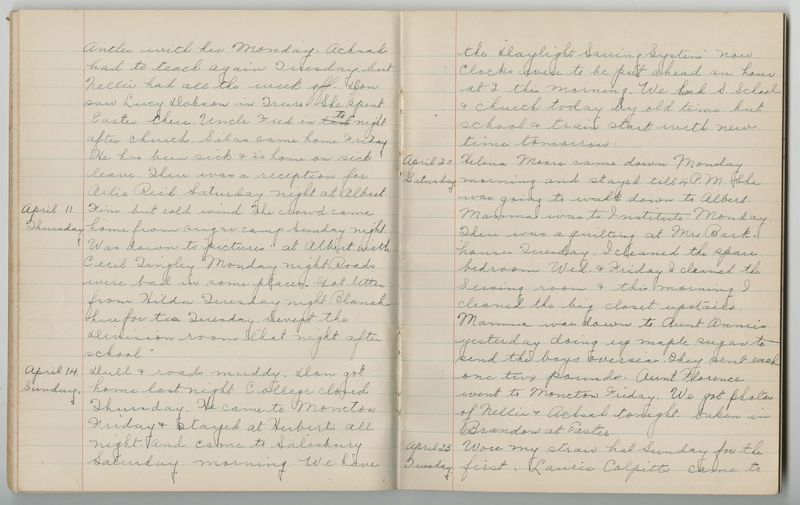 Antler with her Monday. Achsah
had to teach again Tuesday, but
Nellie had all the week off. Don
saw Lucy Dobson in Truro. She spent
Easter there. Uncle Fred in to night
after church. Silas came home Friday
He has been sick & is home on sick
leave. There was a reception for
Arlie Reid Saturday night at Albert
April 11 Fine but cold wind The crowd came
Thursday home from sugar camp Sunday night
Was down to "pictures" at Albert with
Cecil Tingley Monday night Roads
were bad in some places. Got letter
from Hilda Tuesday night Blanch
here for tea Tuesday. Swept the
Division room that night after
school
April 14 Dull & road muddy. Don got
Sunday. home last night College closed
Thursday. He came to Moncton
Friday & stayed at Huberts all
night and came to Salisbury
Saturday morning We have
the "Daylight Saving System" now.
Clocks were to be put ahead an hour
at 2 this morning. We had S. School
& church today by old time but
school & train start with new
time tomorrow.
April 20 Helena Moore came down Monday
Saturday morning and stayed till 4 P.M. She
was going to walk down to Albert
Mamma was to Institute Monday.
There was a quilting at Mrs Bark-
house Tuesday. I cleaned the spare
bedroom Wed. & Friday I cleaned the
sewing room & this morning I
cleaned the big closet upstairs.
Mamma was down to Aunt Annie's
yesterday doing up maple sugar to
send the boys overseas. They sent each
one two pounds. Aunt Florence
went to Moncton Friday. We got photos
of Nellie & Achsah tonight taken in
Brandon at Easter
April 23 Wore my straw hat Sunday for the
Tuesday first. Laurie Colpitts came to